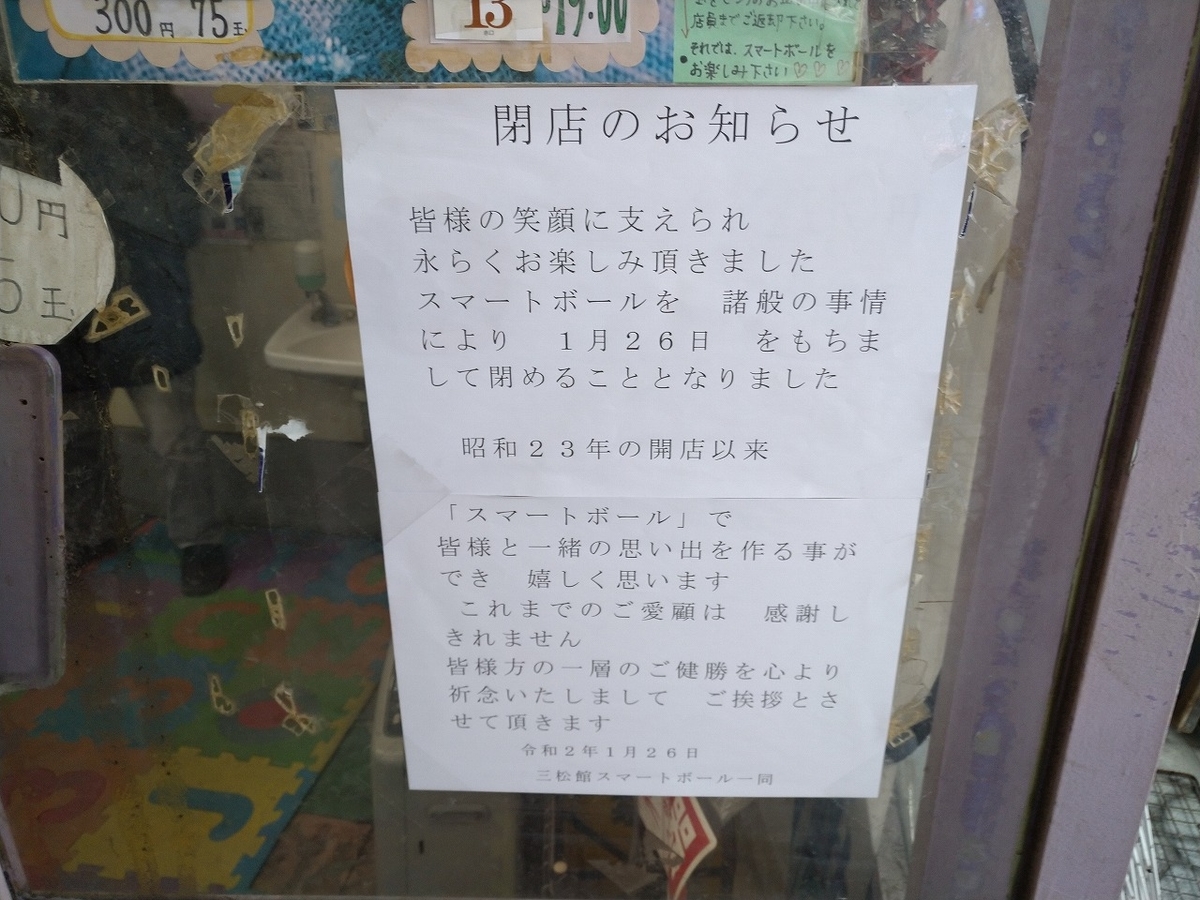 300円 75玉
13
19:00
店員までご返却下さい。
それでは、スマートボールを
お楽しみ下さい♡♡♡
円
0玉
閉店のお知らせ
皆様の笑顔に支えられ
永らくお楽しみ頂きました
スマートボールを　諸般の事情
により　１月２６日　をもちま
して閉めることとなりました
昭和２３年の開店以来
「スマートボール」で
皆様と一緒の思い出を作る事が
でき　嬉しく思います
これまでのご愛顧は　感謝し
きれません
皆様方の一層のご健勝を心より
祈念いたしまして　ご挨拶とさ
せて頂きます
令和２年１月２６日
三松館スマートボール一同